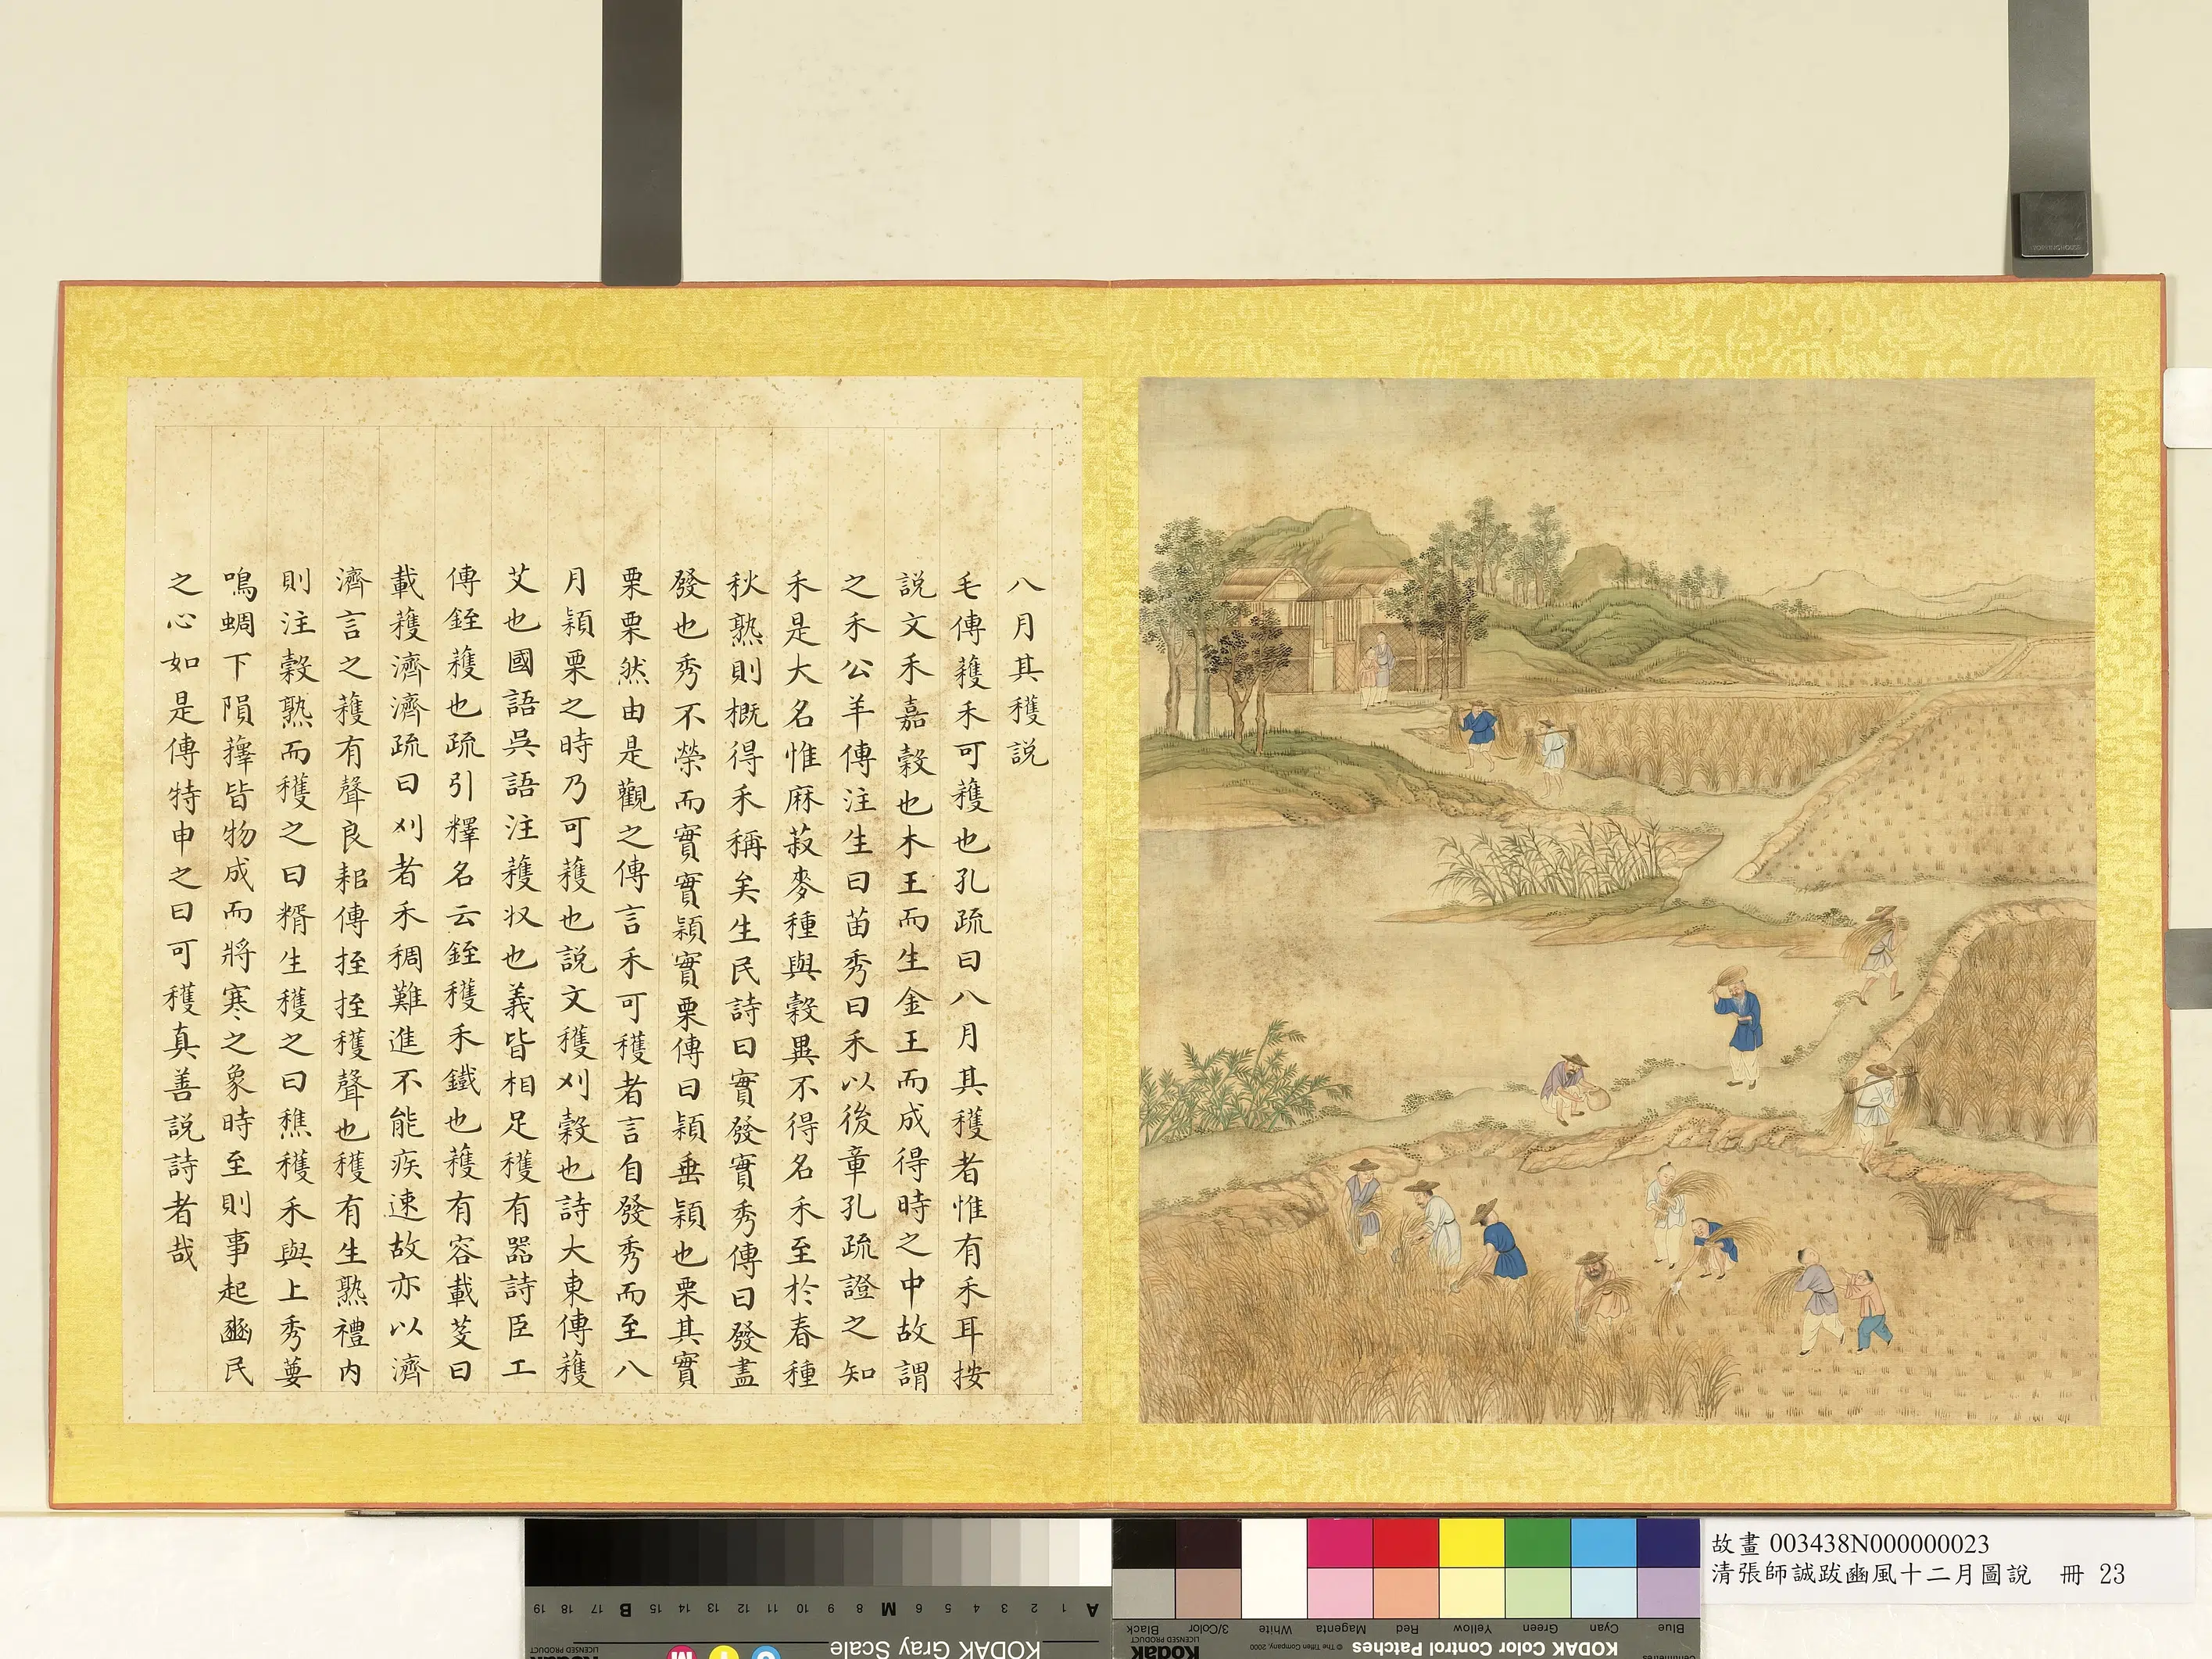 八月其穫説
毛傳䕶禾可䕶也孔疏曰八月其穫者惟有禾耳按
説文禾嘉穀也木王而生金王而成得時之中故謂
之禾公羊傳注生曰苗秀曰禾以後章孔疏證之知
禾是大名惟麻菽麥種與穀異不得名禾至於春種
秋熟則概得禾稱矣生民詩曰實發實秀傳曰發盡
發也秀不榮而實實穎實栗傳曰穎垂穎也栗其實
栗栗然由是觀之傳言禾可穫者言自發秀而至八
月穎栗之時乃可䕶也説文穫刈穀也詩大東傳䕶
艾也國語吳語注䕶収也義皆相足穫有器詩臣工
傳銍䕶也疏引釋名云銍穫禾鐵也䕶有容載芟曰
載䕶濟濟疏曰刈者禾稠難進不能疾速故亦以濟
濟言之䕶有聲良耜傳挃挃穫聲也穫有生熟禮内
則注穀熟而穫之曰糈生穫之曰穛穫禾與上秀葽
鳴蜩下隕蘀皆物成而將寒之象時至則事起豳民
之心如是傳特申之曰可穫真善説詩者哉
故畫 003438N000000023
清張師誠跋豳風十二月圖說 冊 23
KODAK Gray Scale
KODAK Color Control Patches © The Tiffen Company, 2000
Kodak
LICENSED PRODUCT
Blue Cyan Green Yellow Red Magenta White 3/Color Black
A 1 2 3 4 5 6 M 8 9 10 11 12 13 14 15 B 17 18 19